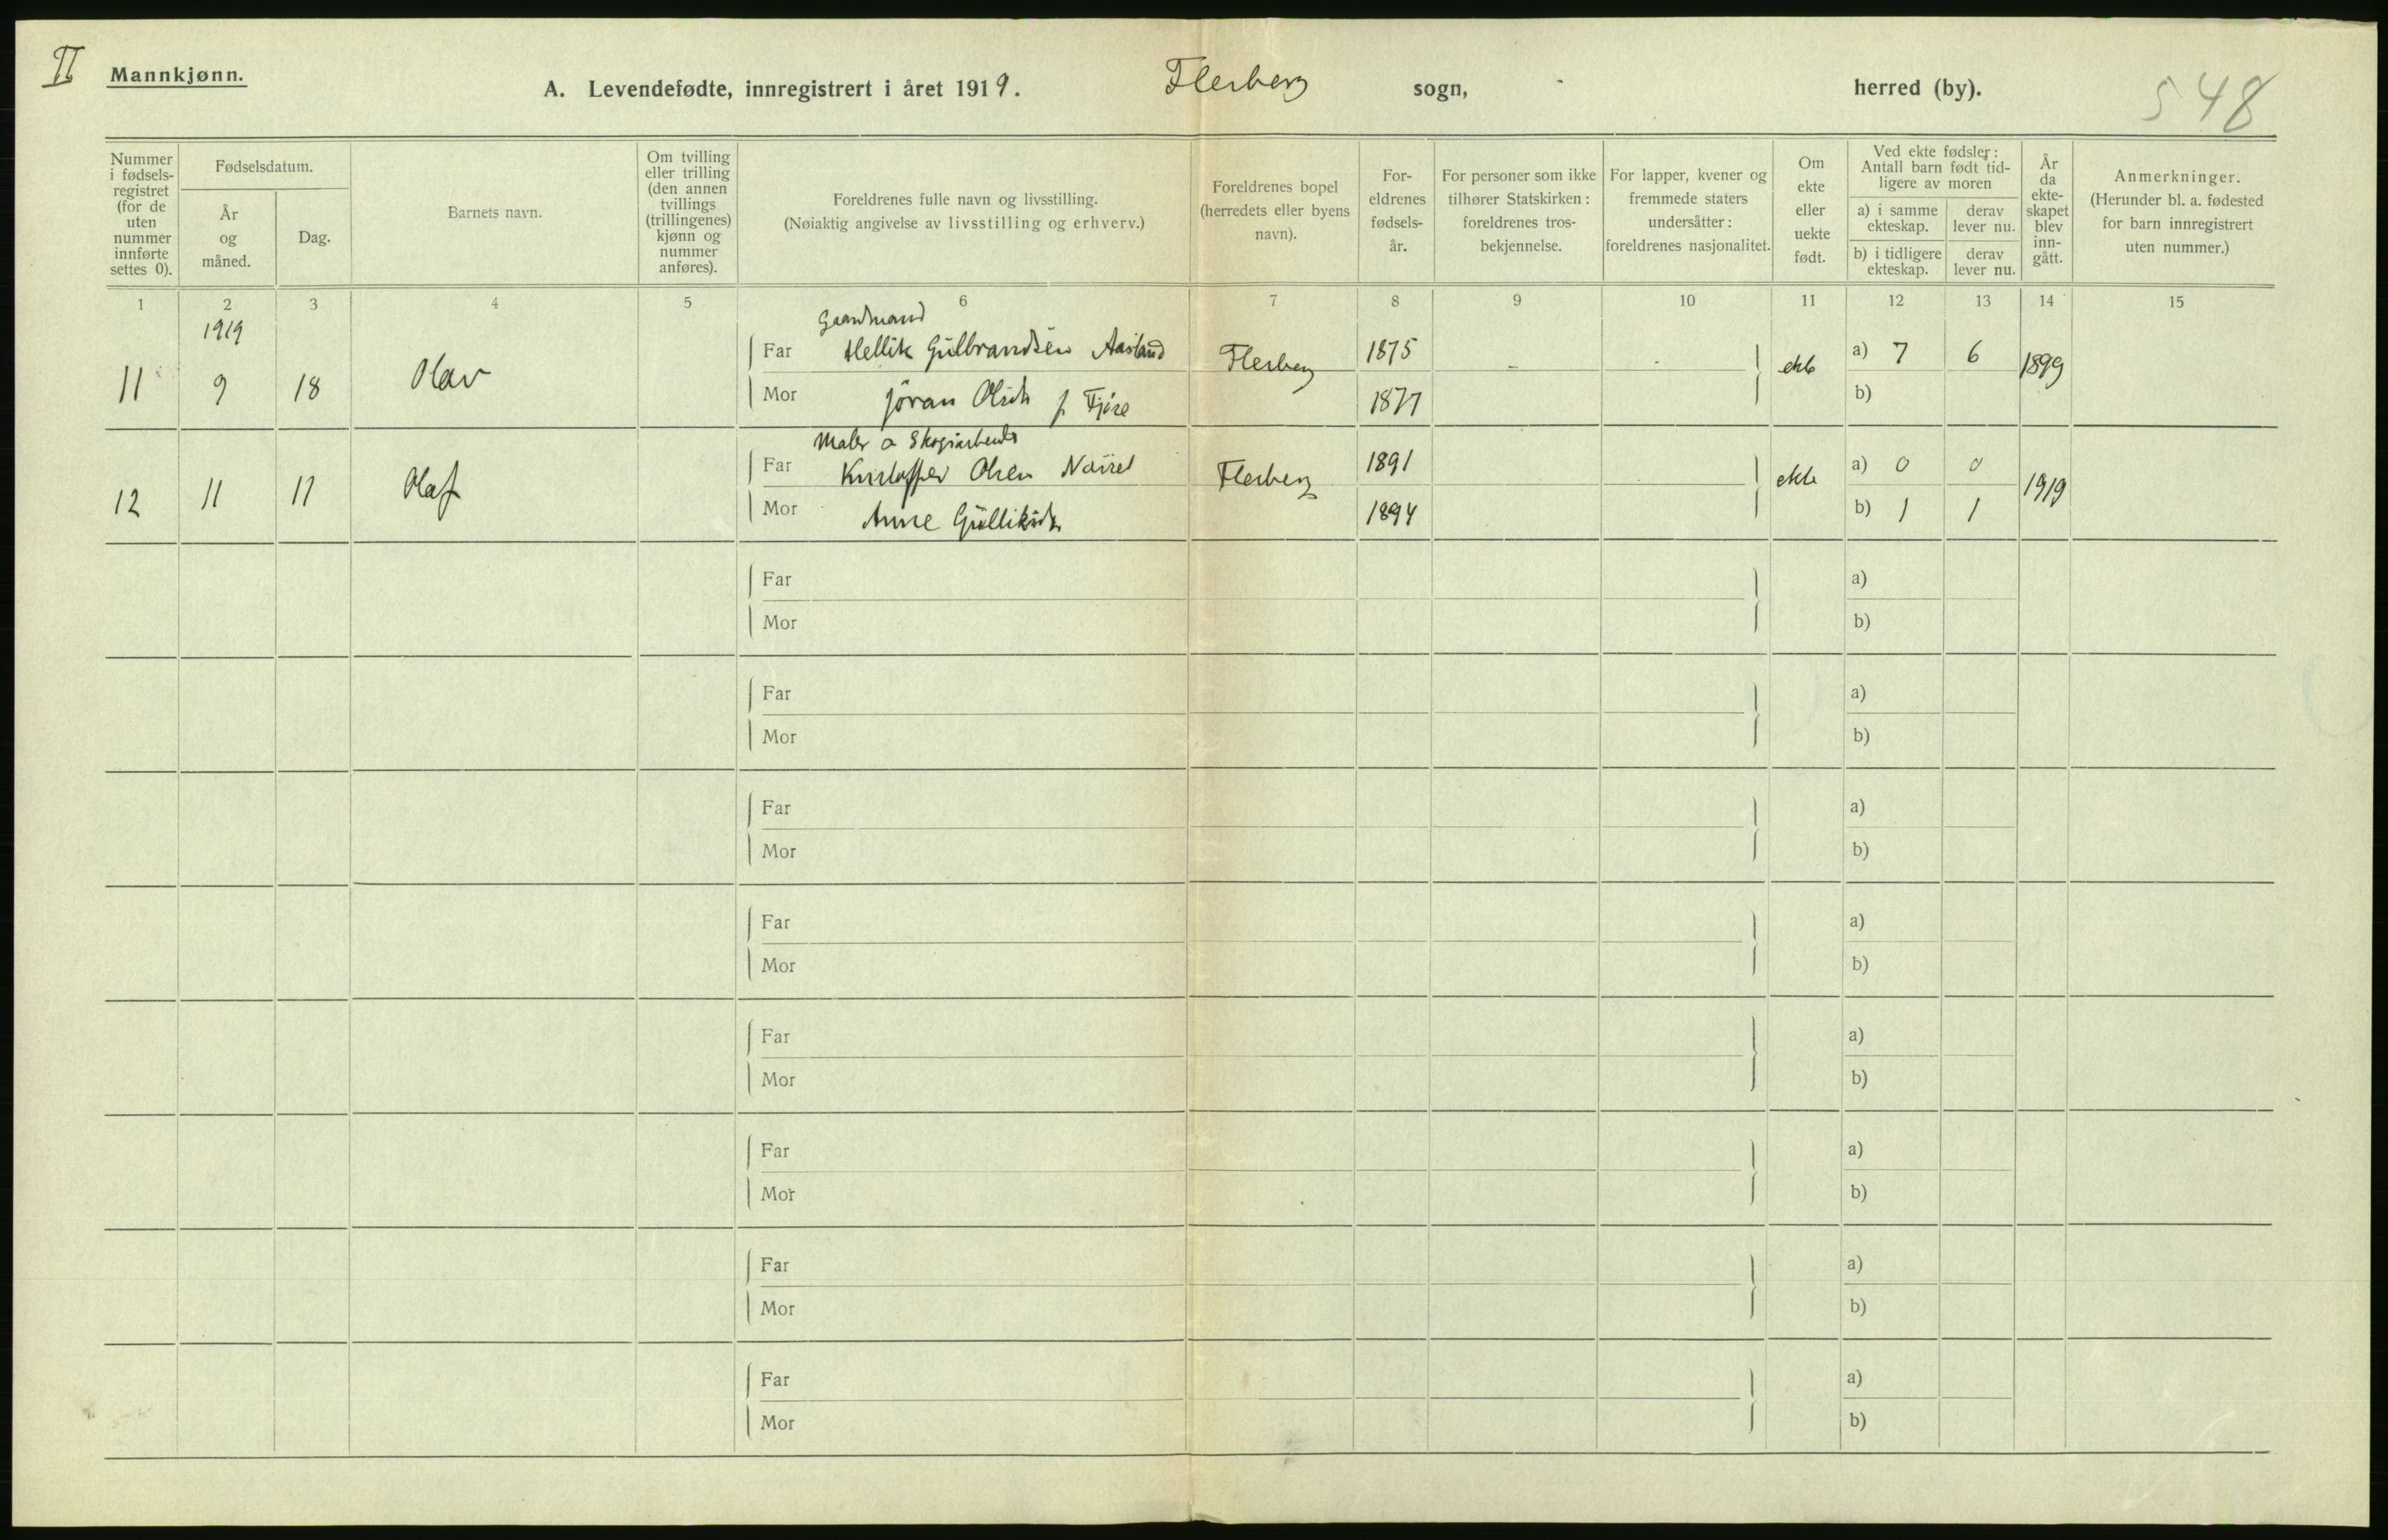 II
Mannkjønn.
A. Levendefødte, innregistrert i året 1919.
Flesberg sogn,
herred (by).
548
Nummer i fødselsregistret (for de uten nummer innførte settes 0).
Fødselsdatum.
År og måned.
Dag.
Barnets navn.
Om tvilling eller trilling (den annen tvillings (trillingenes) kjønn og nummer anføres).
Foreldrenes fulle navn og livsstilling.
(Nøiaktig angivelse av livsstilling og erhverv.)
Foreldrenes bopel (herredets eller byens navn).
For-eldrenes fødsels-år.
For personer som ikke tilhører Statskirken: foreldrenes tros-bekjennelse.
For lapper, kvener og fremmede staters undersåtter: foreldrenes nasjonalitet.
Om ekte eller uekte født.
Ved ekte fødsler: Antall barn født tid-ligere av moren
a) i samme ekteskap.
derav lever nu.
b) i tidligere ekteskap.
derav lever nu.
År da ekte-skapet blev inn-gått.
Anmerkninger.
(Herunder bl. a. fødested for barn innregistrert uten nummer.)
1 2 3 4 5 6 7 8 9 10 11 12 13 14 15
1919
Gaardmand
11 9 18 Olav
Far Hellik Gulbrandsen Aasland Flesberg 1875 - - ekte a) 7 6 1899
Mor Jöran Olsdt f. 1877 b)
Maler o Skogsarbeider
12 11 11 Olaf
Far Kristoffer Olsen Flesberg 1891 ekte a) 0 0 1919
Mor Anne Gulliksdt 1894 b) 1 1
Far a)
Mor b)
Far a)
Mor b)
Far a)
Mor b)
Far a)
Mor b)
Far a)
Mor b)
Far a)
Mor b)
Far a)
Mor b)
Far a)
Mor b)